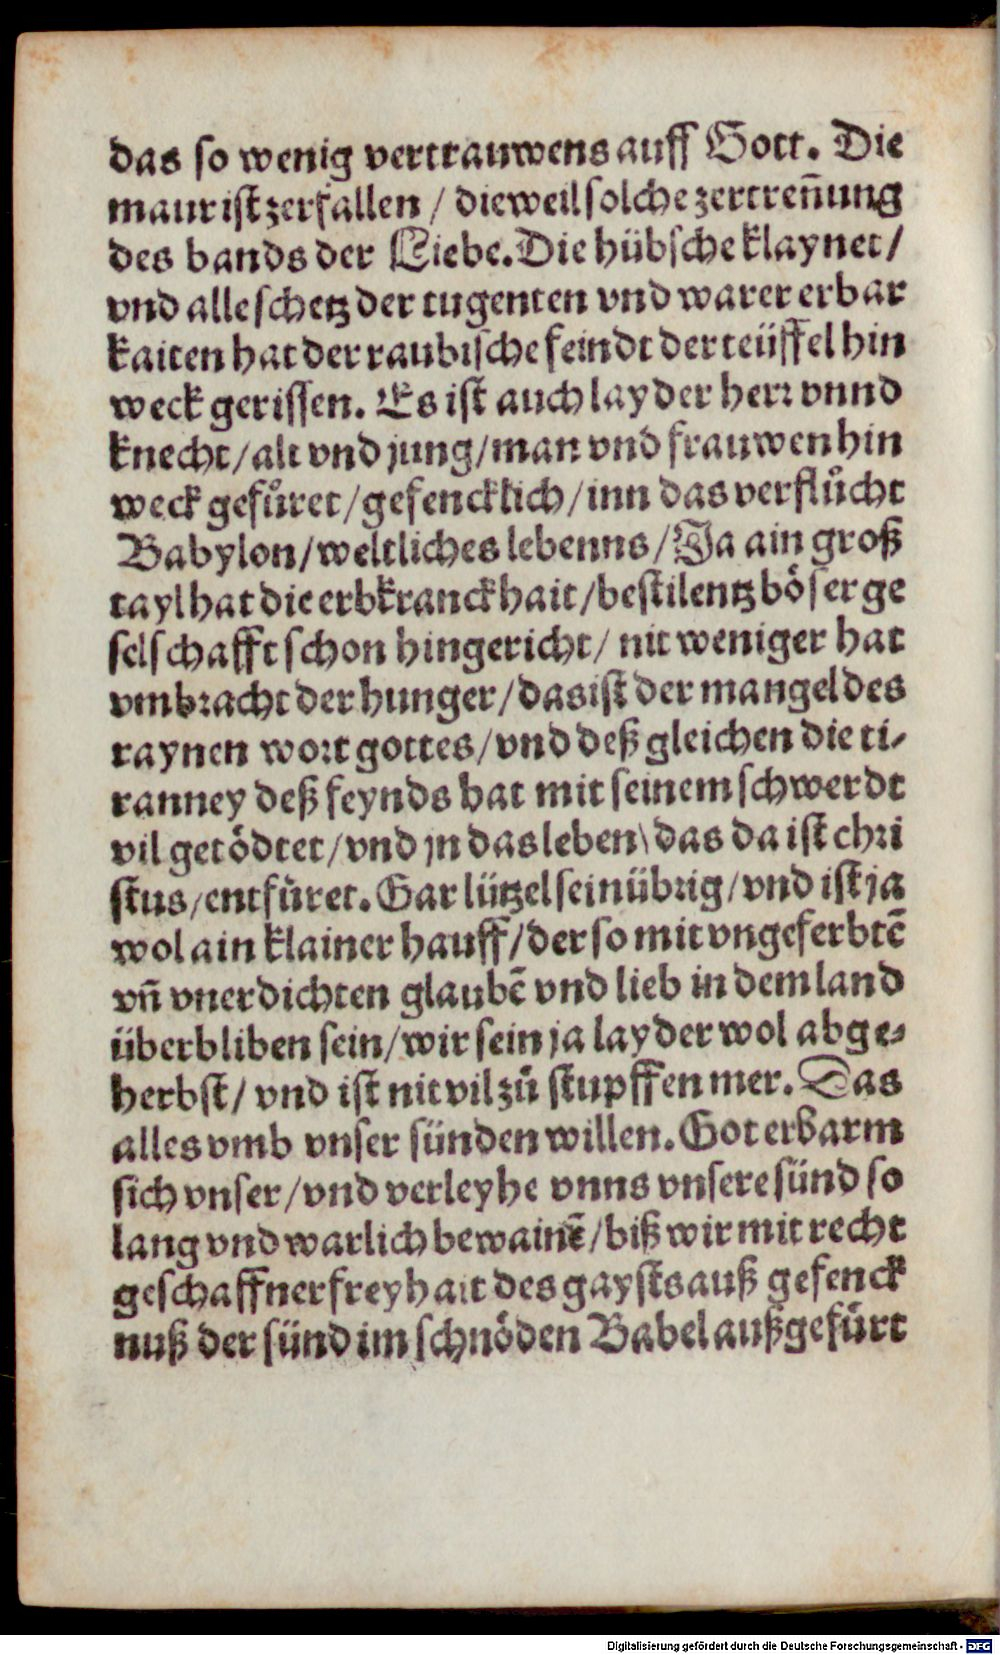 das so wenig vertrauwens auff Gott. Die
maur ist zerfallen / dieweil solche zertren̄ung
des bands der Liebe. Die hübsche klaynet /
vnd alle schetz der tugenten vnd warer erbar
kaiten hat der raubische feindt der teüffel hin
weck gerissen. Es ist auch layder herr vnnd
knecht / alt vnd jung / man vnd frauwen hin
weck gefůret / gefencklich / inn das verflůcht
Babylon / weltliches lebenns / Ja ain groß
tayl hat die erbkranckhait / bestilentz böser ge
selschafft schon hingericht / nit weniger hat
vmbracht der hunger / das ist der mangel des
raynen wort gottes / vnd deß gleichen die ti⸗
ranney deß feynds hat mit seinem schwerdt
vil getödtet / vnd jn das leben \ das da ist chri
stus / entfůret. Gar lützel sein übrig / vnd ist ja
wol ain klainer hauff / der so mit vngeferbtē
vn̄ vnerdichten glaubē vnd lieb in dem land
überbliben sein / wir sein ja layder wol abge⸗
herbst / vnd ist nit vil zů stupffen mer. Das
alles vmb vnser sünden willen. Got erbarm
sich vnser / vnd verleyhe vnns vnsere sünd so
lang vnd warlich bewainē / biß wir mit recht
geschaffner freyhait des gaysts auß gefenck
nuß der sünd im schnöden Babel außgefůrt
Digitalisierung gefördert durch die Deutsche Forschungsgemeinschaft - DFG